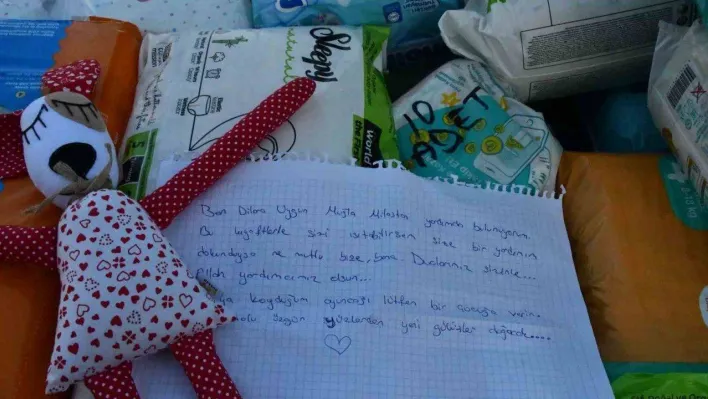 Sleepy
World
10
ADET
Ben Dilara Uygun Muğla Milastan yardımda bulunuyorum.
Bu kıyafetlerle sizi ısıtabilirsem size bir yardımım
dokunduysa ne mutlu bize, bana. Dualarımız sizinle...
Allah yardımcımız olsun...
koyduğum oyuncağı lütfen bir çocuğa verin.
üzgün yüzlerden yeni gülüşler doğacak....